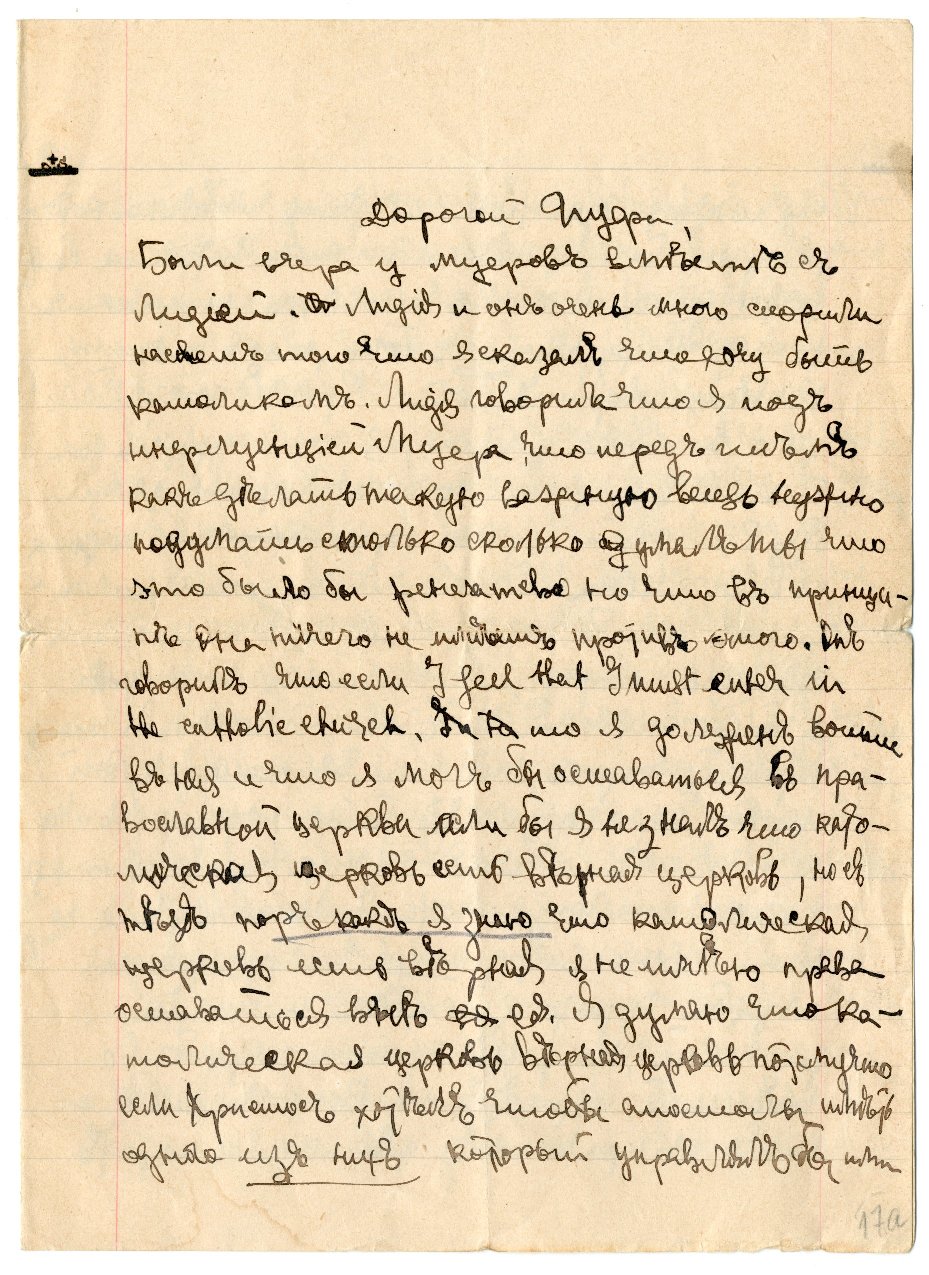 Дорогой Фуфи,
Были вчера у муеровъ вмѣстѣ съ
Лидіей. Лидія и онъ очень много спорили
насчетъ того что я сказалъ что хочу быть
католикомъ. Лидія говорила что я подъ
инфлуенціей Муера, что передъ тѣмъ
какъ здѣлать такую важную вещь нужно
подумать столько сколько думалъ ты что
это было бы ренегатево но что въ принци-
пѣ она ничего не имѣетъ противъ этого. Онъ
говорилъ что если I feel that I must enter in
the catholic church, то я долженъ войти
въ нея и что я могъ бы оставаться въ пра-
вославной церкви если бы я не зналъ что като-
лическая церковь есть вѣрная церковь, но съ
тѣхъ поръ какъ я знаю что католическая
церковь есть вѣрная я не имѣю права
оставаться внѣ ея. Я думаю что ка-
толическая церковь вѣрная церковь потому что
если Христосъ хотѣлъ чтобы апостолы имѣть
одного изъ нихъ который управлялъ бы ими
17а